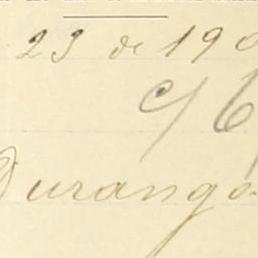 23 de 190
c/
Durango